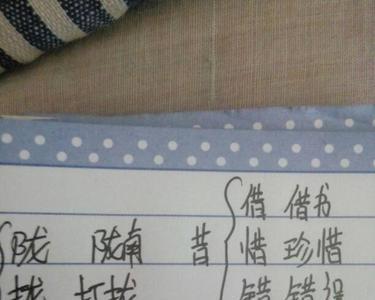 借 借书
陇 陇南 昔 惜 珍惜
拢 打拢 错 错误